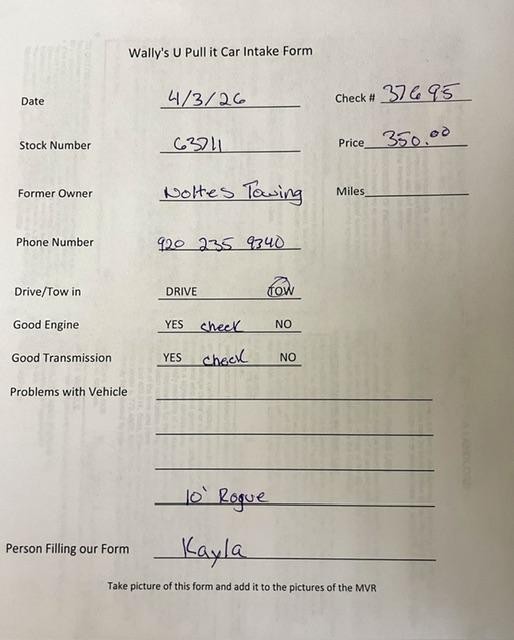 Wally's U Pull it Car Intake Form
Date 4/3/26 Check # 37695
Stock Number 63711 Price 350.00
Former Owner Noltes Towing Miles
Phone Number 920 235 9340
Drive/Tow in DRIVE TOW
Good Engine YES check NO
Good Transmission YES check NO
Problems with Vehicle
10' Rogue
Person Filling our Form Kayla
Take picture of this form and add it to the pictures of the MVR